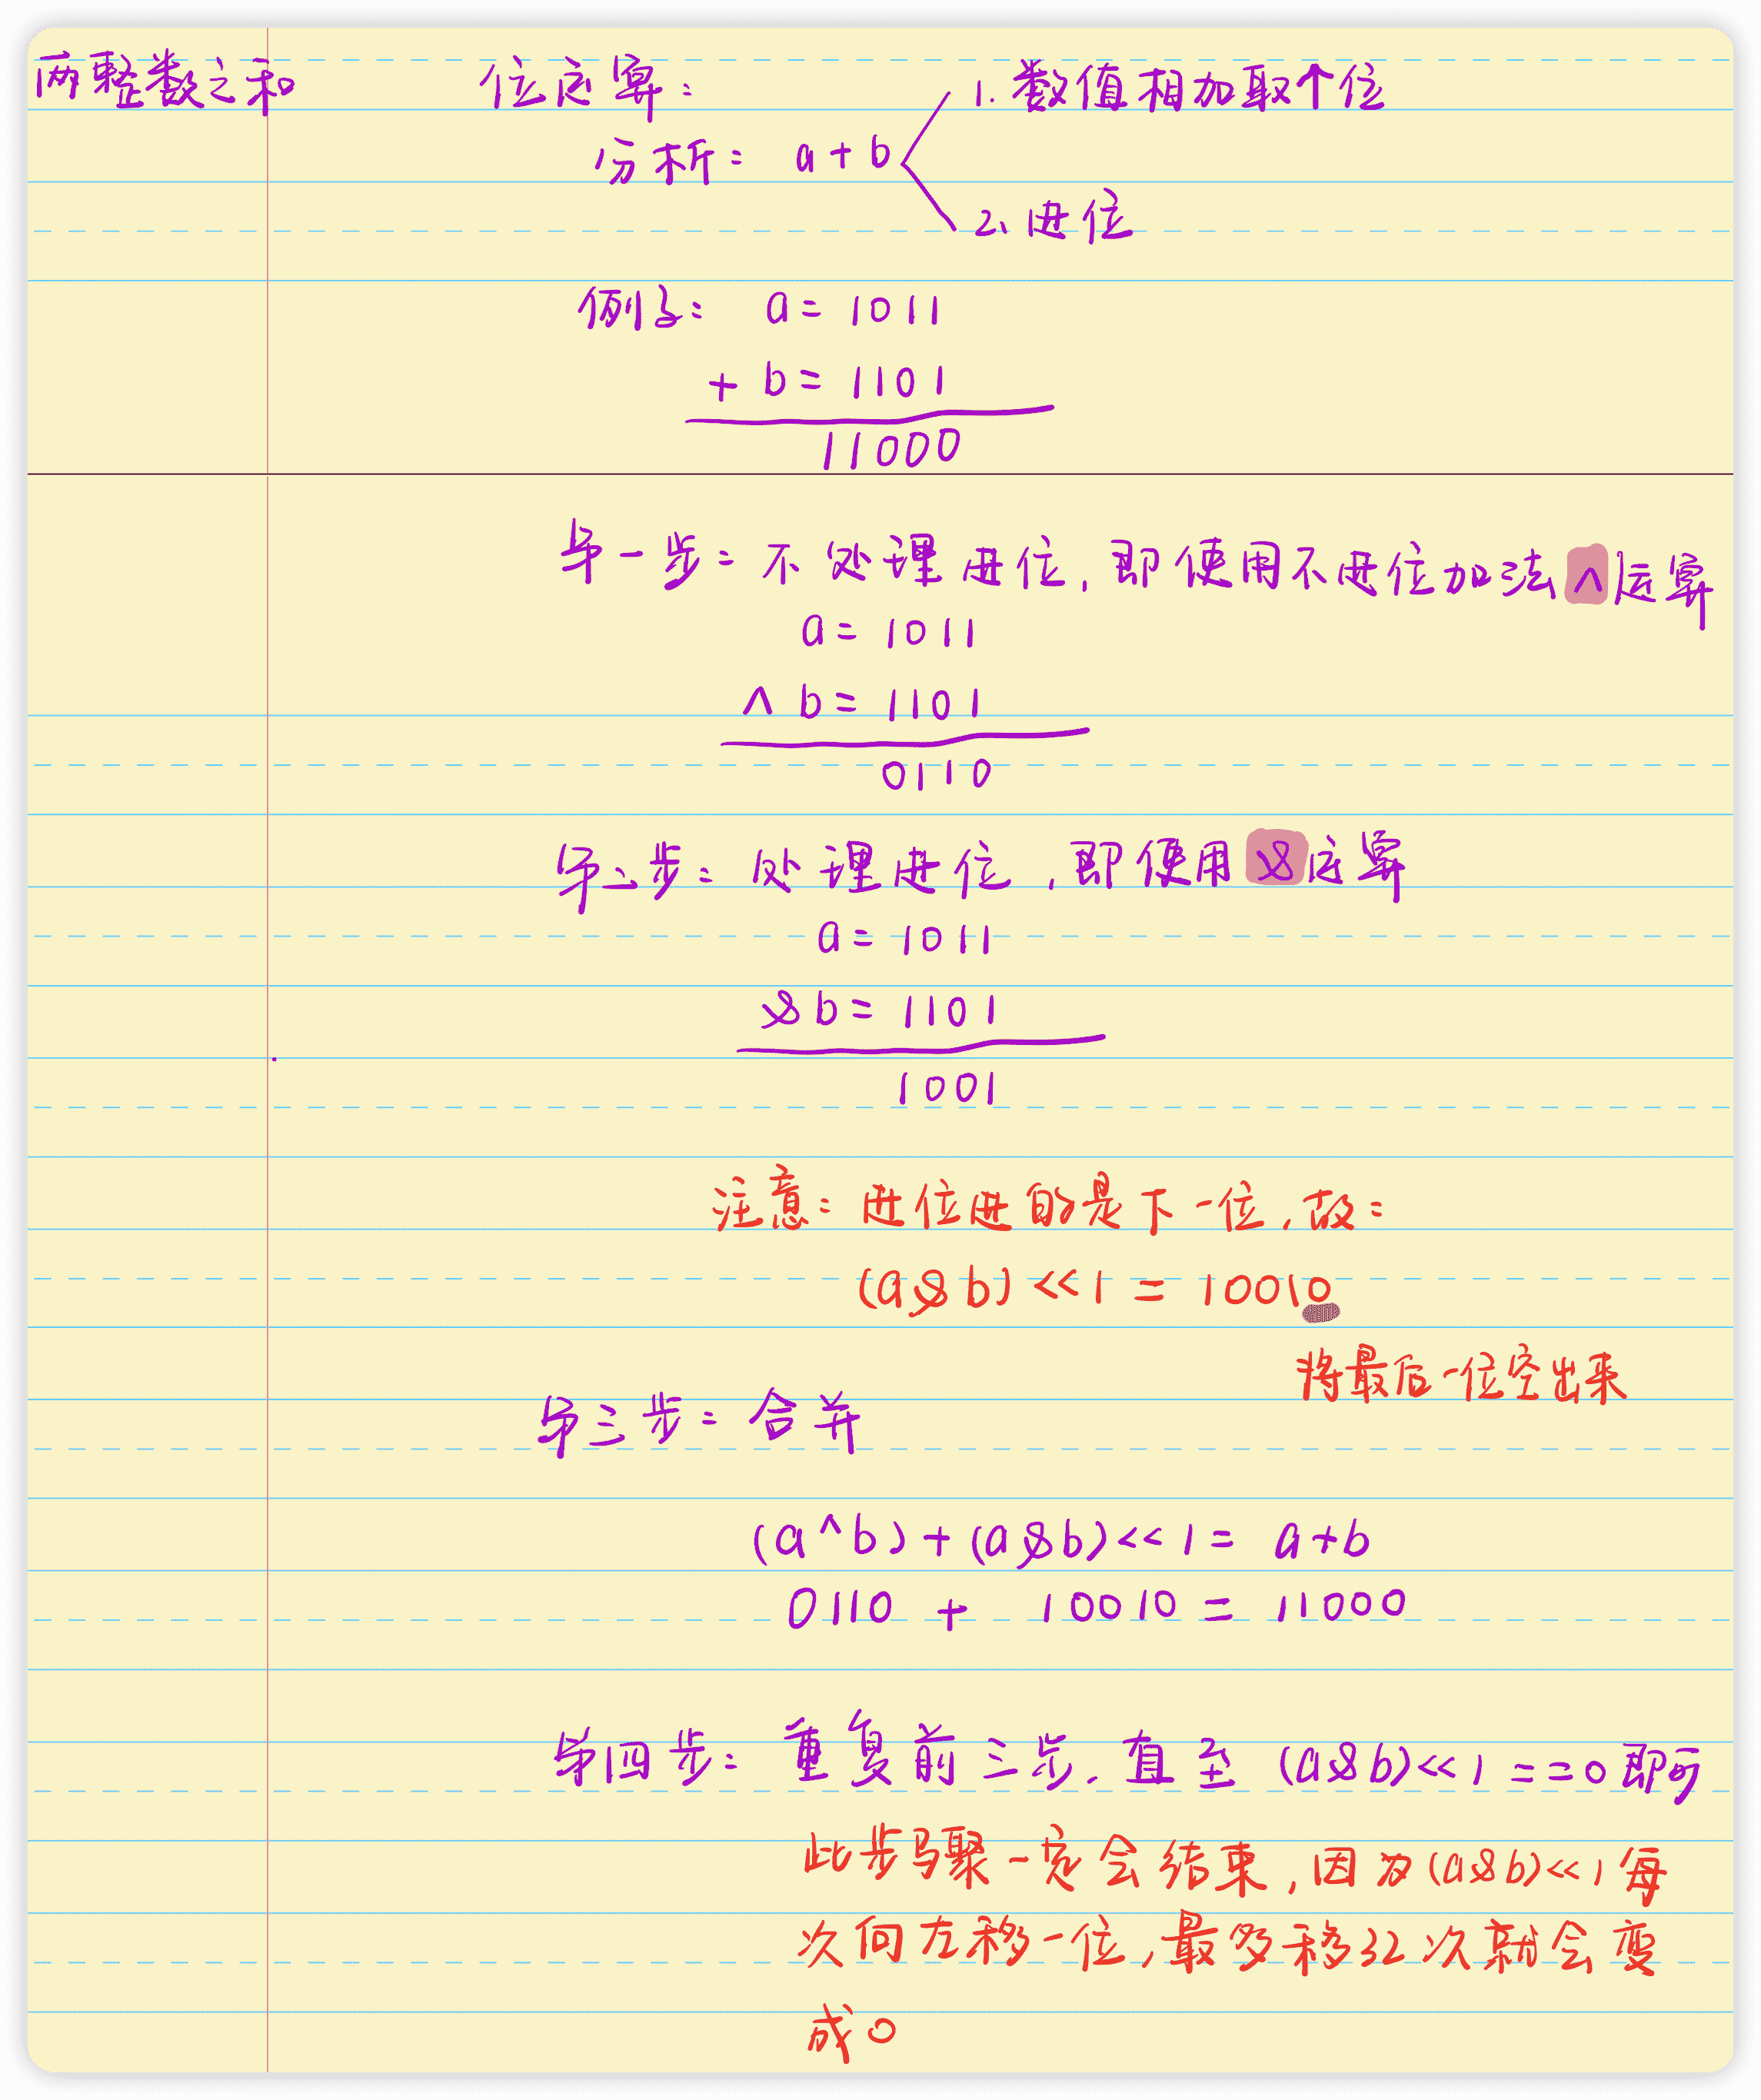 两整数之和
位运算：
分析： a+b
1. 数值相加取个位
2. 进位
例子： a = 1011
+ b = 1101
11000
第一步：不处理进位，即使用不进位加法 ^ 运算
a = 1011
^ b = 1101
0110
第二步：处理进位，即使用 & 运算
a = 1011
& b = 1101
1001
注意：进位进的是下一位，故：
(a&b) << 1 = 10010
将最后一位空出来
第三步：合并
(a^b) + (a&b) << 1 = a+b
0110 + 10010 = 11000
第四步：重复前三步，直至 (a&b) << 1 == 0 即可
此步骤一定会结束，因为 (a&b) << 1 每
次向左移一位，最多移32次就会变
成0